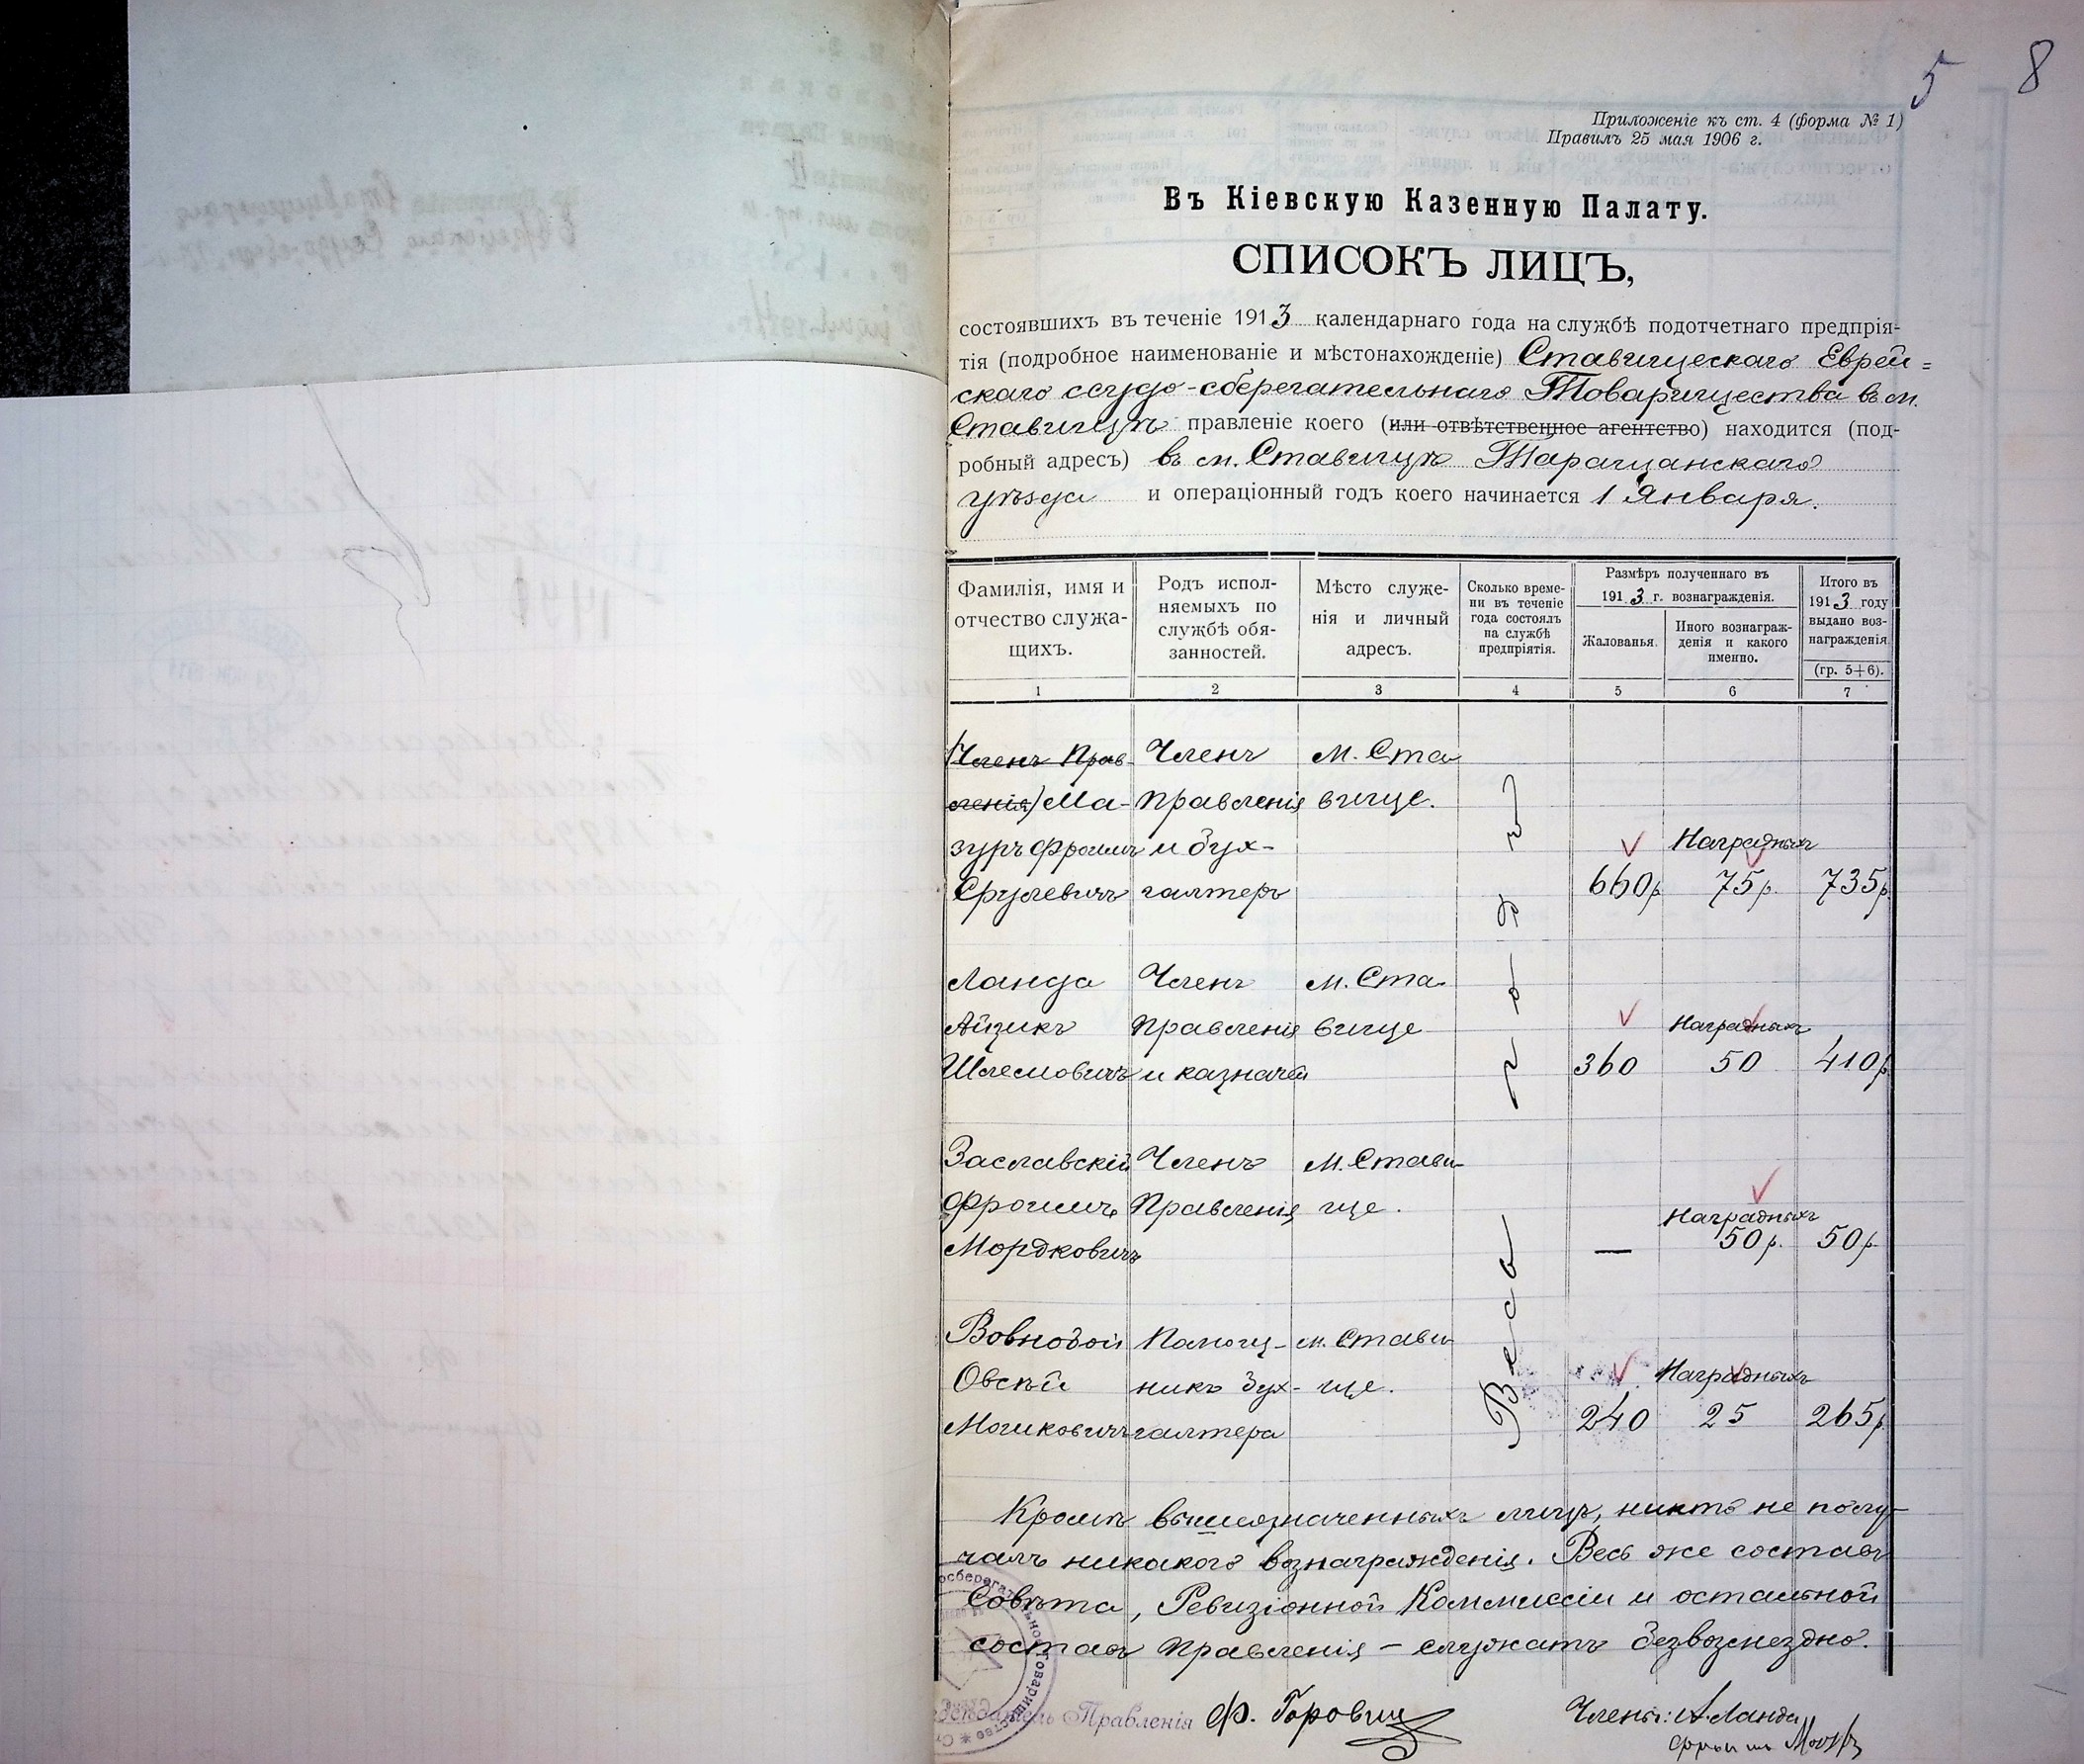 5 8
Приложеніе къ ст. 4 (форма № 1)
Правилъ 25 мая 1906 г.
Въ Кіевскую Казенную Палату.
СПИСОКЪ ЛИЦЪ,
состоявшихъ въ теченіе 1913 календарнаго года на службѣ подотчетнаго предпрія-
тія (подробное наименованіе и мѣстонахожденіе) Ставищескаго Еврей=
скаго ссудо-сберегательнаго Товарищества въ м.
Ставищѣ правленіе коего (или отвѣтственное агентство) находится (под-
робный адресъ) въ м. Ставищѣ Таращанскаго
уѣзда и операціонный годъ коего начинается 1 Января.
Фамилія, имя и
отчество служа-
щихъ.
Родъ испол-
няемыхъ по
службѣ обя-
занностей.
Мѣсто служе-
нія и личный
адресъ.
Сколько време-
ни въ теченіе
года состоялъ
на службѣ
предпріятія.
Размѣръ полученнаго въ
1913 г. вознагражденія.
Жалованья.
Иного вознаграж-
денія и какого
именно.
Итого въ
1913 году
выдано воз-
награжденія
(гр. 5+6).
1 2 3 4 5 6 7
(Членъ Прав- Членъ м. Ста
ленія) Ма- Правленія вище.
зуръ Фроимъ и бух- Наградныхъ
Срулевичъ галтеръ 660р 75р. 735р
Ланда Членъ м. Ста-
Айзикъ Правленія вище Наградныхъ
Шлемовичъ и казначей 360 50 410р
Заславскій Членъ м. Стави-
Фроимъ Правленія ще. Наградныхъ
Мордковичъ — 50р. 50р
Вовновой Помощ- м. Стави
Овсѣй никъ бух- ще. Наградныхъ
Мошковичъ галтера 240 25 265р
Весь годъ
Кромѣ вышеозначенныхъ лицъ, никто не полу-
чалъ никакого вознагражденія. Весь же составъ
Совѣта, Ревизіонной Коммиссіи и остальной
составъ Правленія – служатъ безвозмездно.
Правленія Ф. Горовиц
Члены: А. Ланда